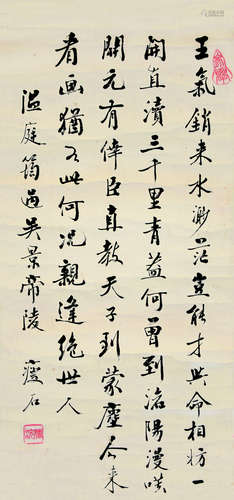 王氣銷來水渺茫豈能才與命相妨一
開直瀆三千里青蓋何曾到洛陽漫咲
開元有倖臣直教天子到蒙塵今來
看画猶如此何況親逢絕世人
温庭筠過吳景帝陵 瘦石